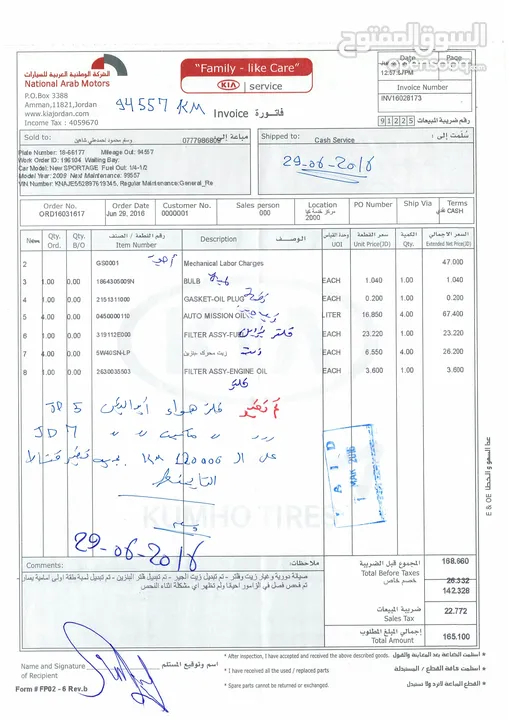 السوق المفتوح
opensooq.com
الشركة الوطنية العربية للسيارات
National Arab Motors
P.O.Box 3388
Amman,11821,Jordan
www.kiajordan.com
Income Tax : 4059670
"Family - like Care"
KIA service
94557 KM
Invoice فاتـورة
Date Page
Invoice Number
INV16028173
91225 رقم ضريبة المبيعات
Sold to: مباعة إلى:
وسام محمود
0777986809
Plate Number: 16-66177 Mileage Out: 94557
Work Order ID: 196934 Waiting Bay:
Car Model: New SPORTAGE Fuel Out: 1/4-1/2
Model Year: 2009 Next Maintenance: 99557
VIN Number: KNAJE552897619345, Regular Maintenance:General_Re
Shipped to: سُلمت إلى:
Cash Service
29-06-2016
Order No. Order Date Customer No. Sales person Location PO Number Ship Via Terms
ORD16031617 Jun 29, 2016 0000001 000 2000 نقدي CASH
Item Qty. Ord. Qty. B/O رقم القطعة / الصنف Item Number Description الوصـف وحدة القياس UOI سعر القطعة Unit Price(JD) الكمية Qty. السعر الاجمالي Extended Net Price(JD)
2 GS0001 Mechanical Labor Charges 47.000
3 1.00 0.00 1864305009N BULB EACH 1.040 1.00 1.040
4 1.00 0.00 2151311000 GASKET-OIL PLUG EACH 0.200 1.00 0.200
5 4.00 0.00 0450000110 AUTO MISSION OIL LITER 16.850 4.00 67.400
6 1.00 0.00 319112E000 FILTER ASSY-FUEL فلتر بنزين EACH 23.220 1.00 23.220
7 4.00 0.00 5W40SN-LP زيت محرك بنزين زيت EACH 6.550 4.00 26.200
8 1.00 0.00 2630035503 FILTER ASSY-ENGINE OIL EACH 3.600 1.00 3.600
فلتر
فلتر هواء
5 JD
7 JD
على الـ 120000 KM
PAID
29-06-2016
KUMHO TIRES
E & OE عدا السهو و الخطأ
Comments: ملاحظات:
صيانة دورية وغيار زيت وفلتر - تم تبديل زيت الجير - تم تبديل فلتر البنزين - تم تبديل لمبة طقة اولى امامية يسار -
تم فحص فصل في الزامور احيانا ولم تظهر اي مشكلة اثناء الفحص
المجموع قبل الضريبة 168.660
Total Before Taxes
خصم خاص 26.332
142.328
ضريبة المبيعات 22.772
Sales Tax
إجمالي المبلغ المطلوب 165.100
Total Amount
Name and Signature of Recipient اسم وتوقيع المستلم
Form # FP02 - 6 Rev.b
* After inspection, I have accepted and received the above described goods.
* I have received all the used / replaced parts
* Spare parts cannot be returned or exchanged.
* استلمت البضاعة بعد المعاينة والقبول
* استلمت كافة القطع / المستبدلة
* القطع المباعة لا ترد ولا تستبدل